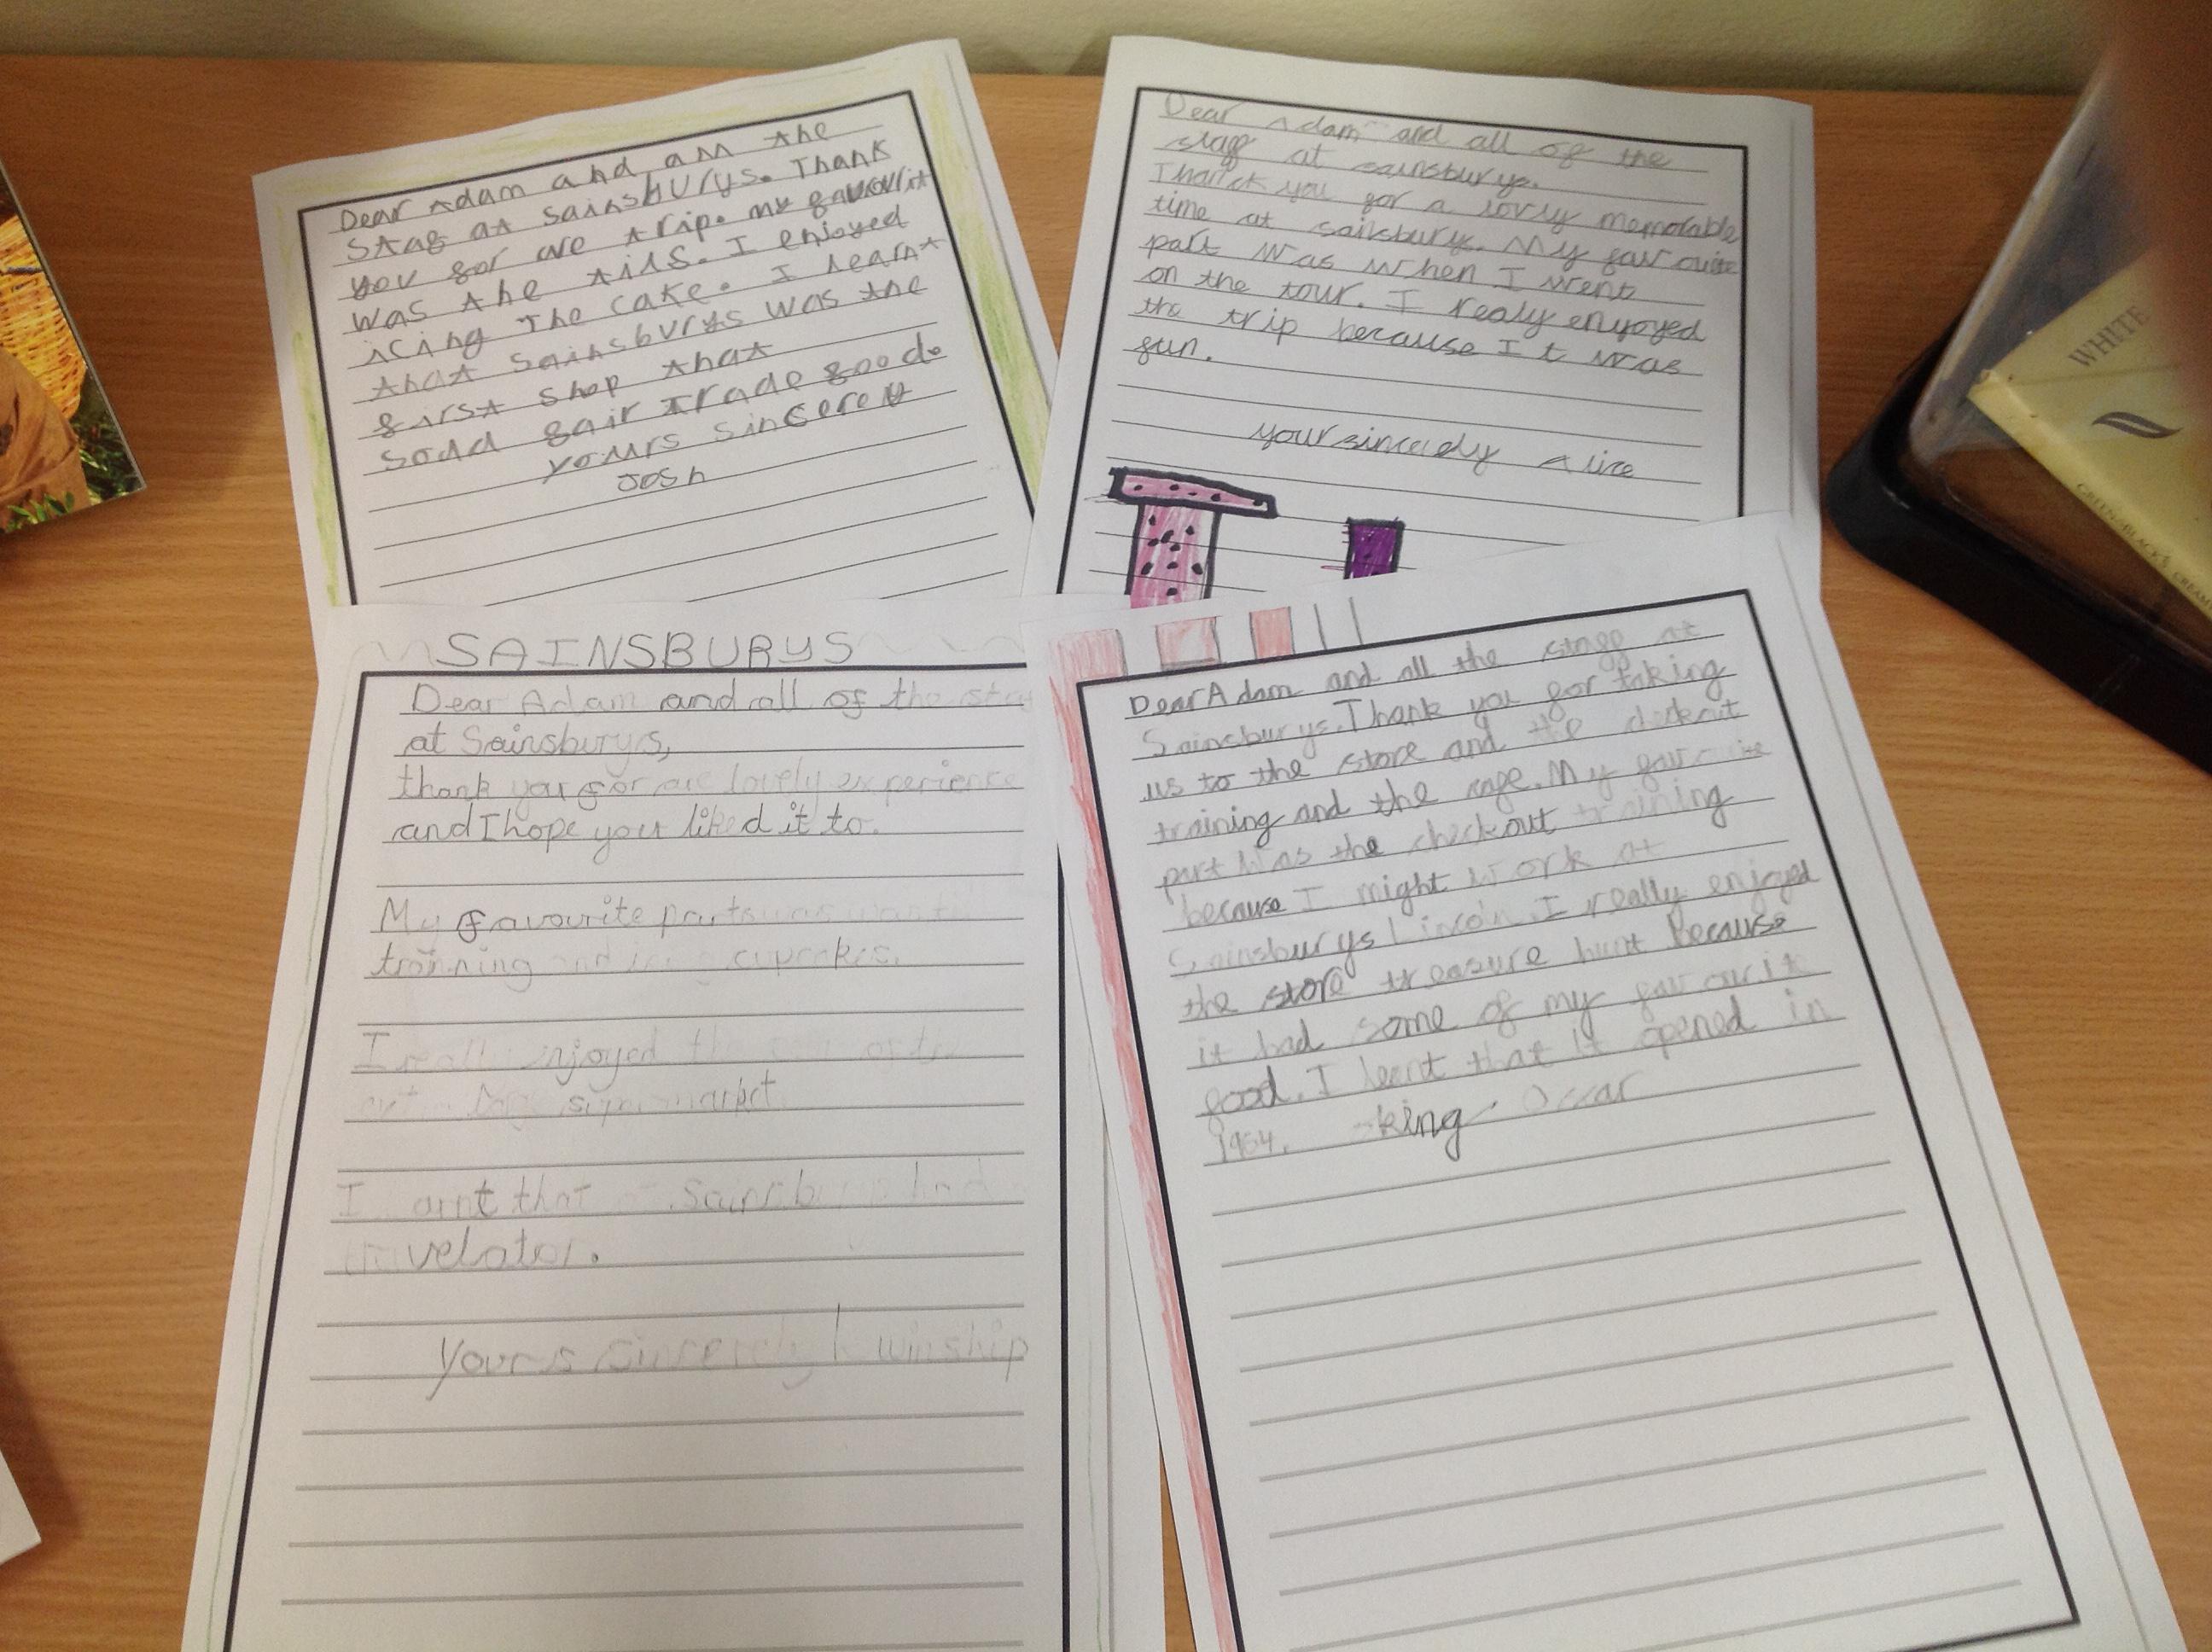 Dear Adam and all the
staff at Sainsburys. Thank
you for are trip. my favourit
was the tills. I enjoyed
icing The cake. I learnt
that Sainsburys was the
first shop that
sold fair Trade food.
yours sincerely
Josh
Dear Adam and all of the
staff at sainsburys.
Thank you for a lovly memorable
time at sainsburys. My favouite
part was when I went
on the tour. I realy enyoyed
the trip because It was
fun.
your sincerely Alice
SAINSBURYS
Dear Adam and all of the
at Sainsburys,
thank you for are lovely experience
and I hope you liked it to.
My favourite parts was
trainning and icing cupcakes.
I really injoyed the
supermarket
I that Sainsburys had
travelator.
Yours sincerely winship
Dear Adam and all the staff at
Sainsburys. Thank you for taking
us to the store and the checkout
training and the cafe. My favouite
part was the checkout training
because I might work at
Sainsburys Lincoln. I really enjoyed
the store treasure hunt Because
it had some of my favourit
food. I learnt that it opened in
king Oscar
WHITE
GREEN & BLACK'S CREAMY